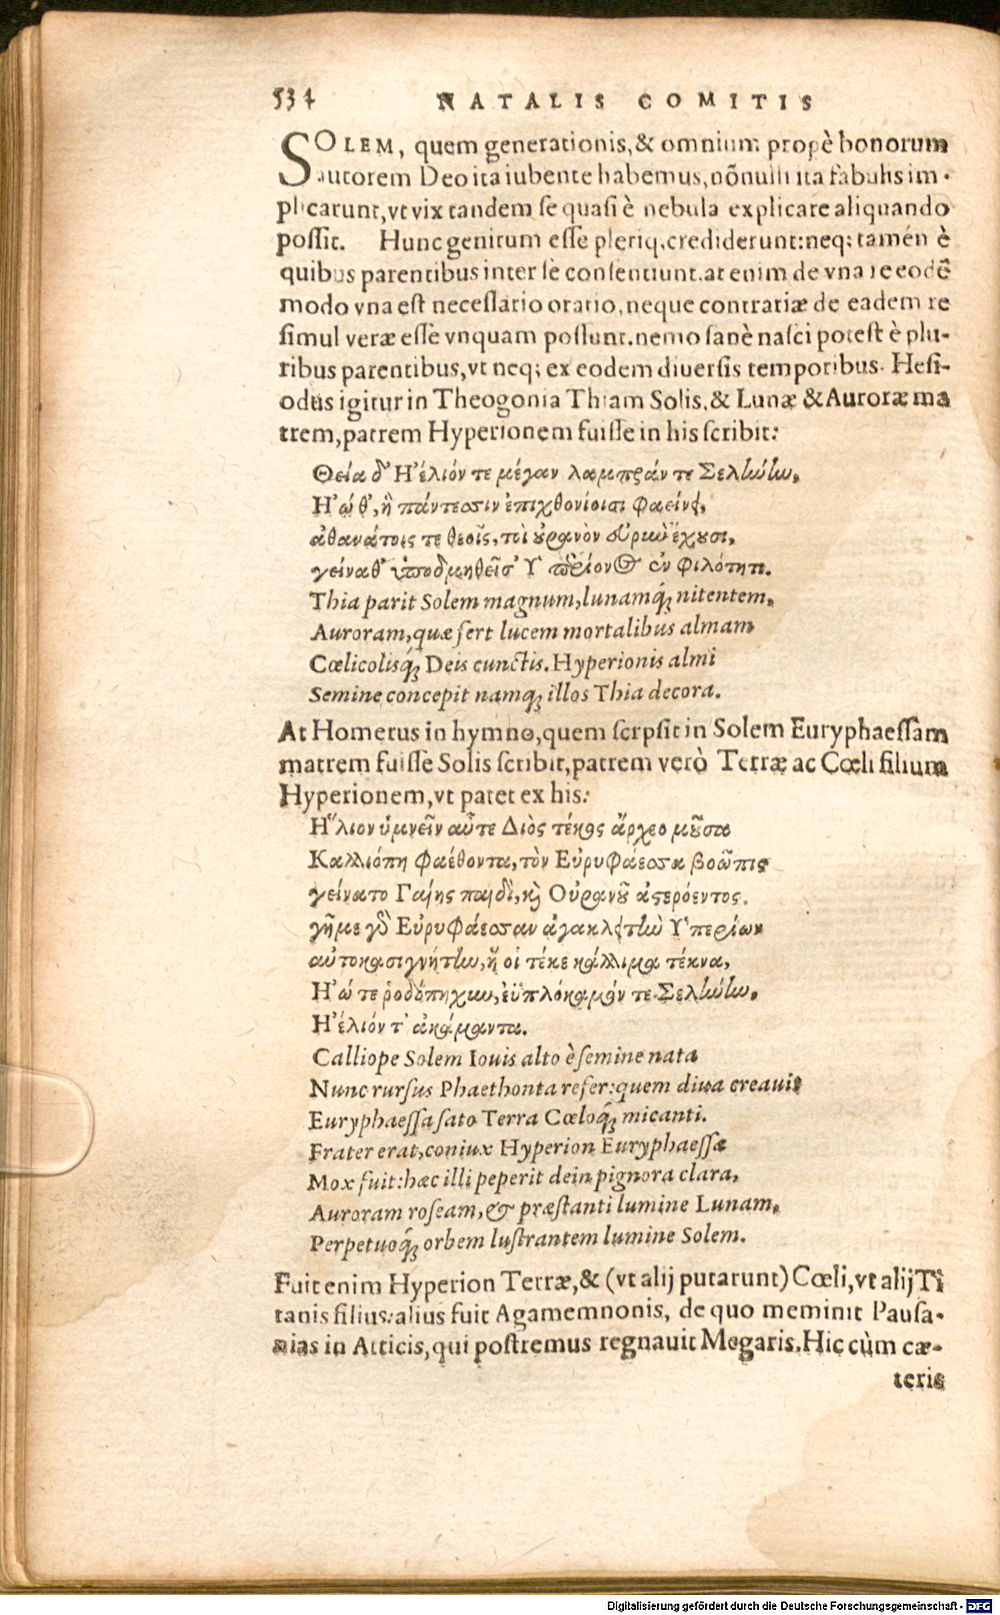 534 NATALIS COMITIS
SOLEM, quem generationis, & omnium propè bonorum
autorem Deo ita iubente habemus, nõnulli ita fabulis im-
plicarunt, vt vix tandem se quasi è nebula explicare aliquando
possit. Hunc genitum esse pleriq; crediderunt: neq; tamen è
quibus parentibus inter se consentiunt. at enim de vna re eodẽ
modo vna est necessario oratio, neque contrariæ de eadem re
simul veræ esse vnquam possunt. nemo sanè nasci potest è plu-
ribus parentibus, vt neq; ex eodem diuersis temporibus. Hesi-
odus igitur in Theogonia Thiam Solis, & Lunæ & Auroræ ma
trem, patrem Hyperionem fuisse in his scribit:
Θεία δ' Ἠέλιόν τε μέγαν λαμπράν τε Σελήνην,
Ἠώ θ', ἣ πάντεσσιν ἐπιχθονίοισι φαείνει,
ἀθανάτοις τε θεοῖς, τοὶ οὐρανὸν εὐρὺν ἔχουσι,
γείναθ' ὑποδμηθεῖσ' Ὑπερίονος ἐν φιλότητι.
Thia parit Solem magnum, lunamq́; nitentem,
Auroram, quæ fert lucem mortalibus almam
Cœlicolisq́; Deis cunctis. Hyperionis almi
Semine concepit namq; illos Thia decora.
At Homerus in hymno, quem scrpsit in Solem Euryphaessam
matrem fuisse Solis scribit, patrem verò Terræ ac Cœli filium
Hyperionem, vt patet ex his:
Ἥλιον ὑμνεῖν αὖτε Διὸς τέκος ἄρχεο μοῦσα
Καλλιόπη φαέθοντα, τὸν Εὐρυφάεσσα βοῶπις
γείνατο Γαίης παιδὶ, καὶ Οὐρανοῦ ἀστερόεντος.
γῆμε γὰρ Εὐρυφάεσσαν ἀγακλειτὴν Ὑπερίων
αὐτοκασιγνήτην, ἥ οἱ τέκε κάλλιμα τέκνα,
Ἠώ τε ῥοδόπηχυν, ἐϋπλόκαμόν τε Σελήνην,
Ἠέλιόν τ' ἀκάμαντα.
Calliope Solem Iouis alto è semine nata
Nunc rursus Phaethonta refer: quem diua creauit
Euryphaessa sato Terra Cœloq́; micanti.
Frater erat, coniux Hyperion Euryphaessæ
Mox fuit: hæc illi peperit dein pignora clara,
Auroram roseam, & præstanti lumine Lunam,
Perpetuoq́; orbem lustrantem lumine Solem.
Fuit enim Hyperion Terræ, & (vt alij putarunt) Cœli, vt alij Ti
tanis filius: alius fuit Agamemnonis, de quo meminit Pausa-
nias in Atticis, qui postremus regnauit Megaris. Hic cùm cæ-
teris
Digitalisierung gefördert durch die Deutsche Forschungsgemeinschaft - DFG